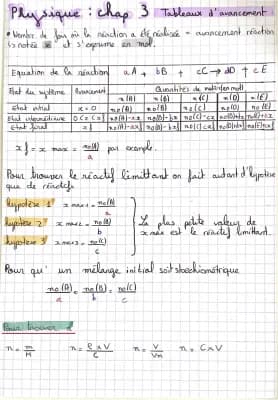 Physique : chap 3 Tableaux d'avancement
• Nombre de fois où la réaction a été réalisée = avancement réaction
notée x et s'exprime en mol.
Equation de la réaction aA + bB + cC → dD + eE
Etat du système Avancement Quantités de matière (mol)
n(A) n(B) n(C) n(D) n(E)
Etat initial x=0 n0(A) n0(B) n0(C) n0(D) n0(E)
Etat intermédiaire 0<x<xf n0(A)-ax n0(B)-bx n0(C)-cx n0(D)+dx n0(E)+ex
Etat final xf n0(A)-axf n0(B)-bxf n0(C)-cxf
xf = x max = n0(A)/a par exemple.
Pour trouver le réactif limitant on fait autant d'hypothèse
que de réactifs
hypotèse 1 x max1 = n0(A)/a
hypotèse 2 x max2 = n0(B)/b
hypotèse 3 x max3 = n0(C)/c
La plus petite valeur de
x max est le réactif limitant.
Pour qu'un mélange initial soit stoechiométrique
n0(A)/a = n0(B)/b = n0(C)/c
Pour trouver
n = m/M n = ρ x V/ n = V/Vm n = C x V